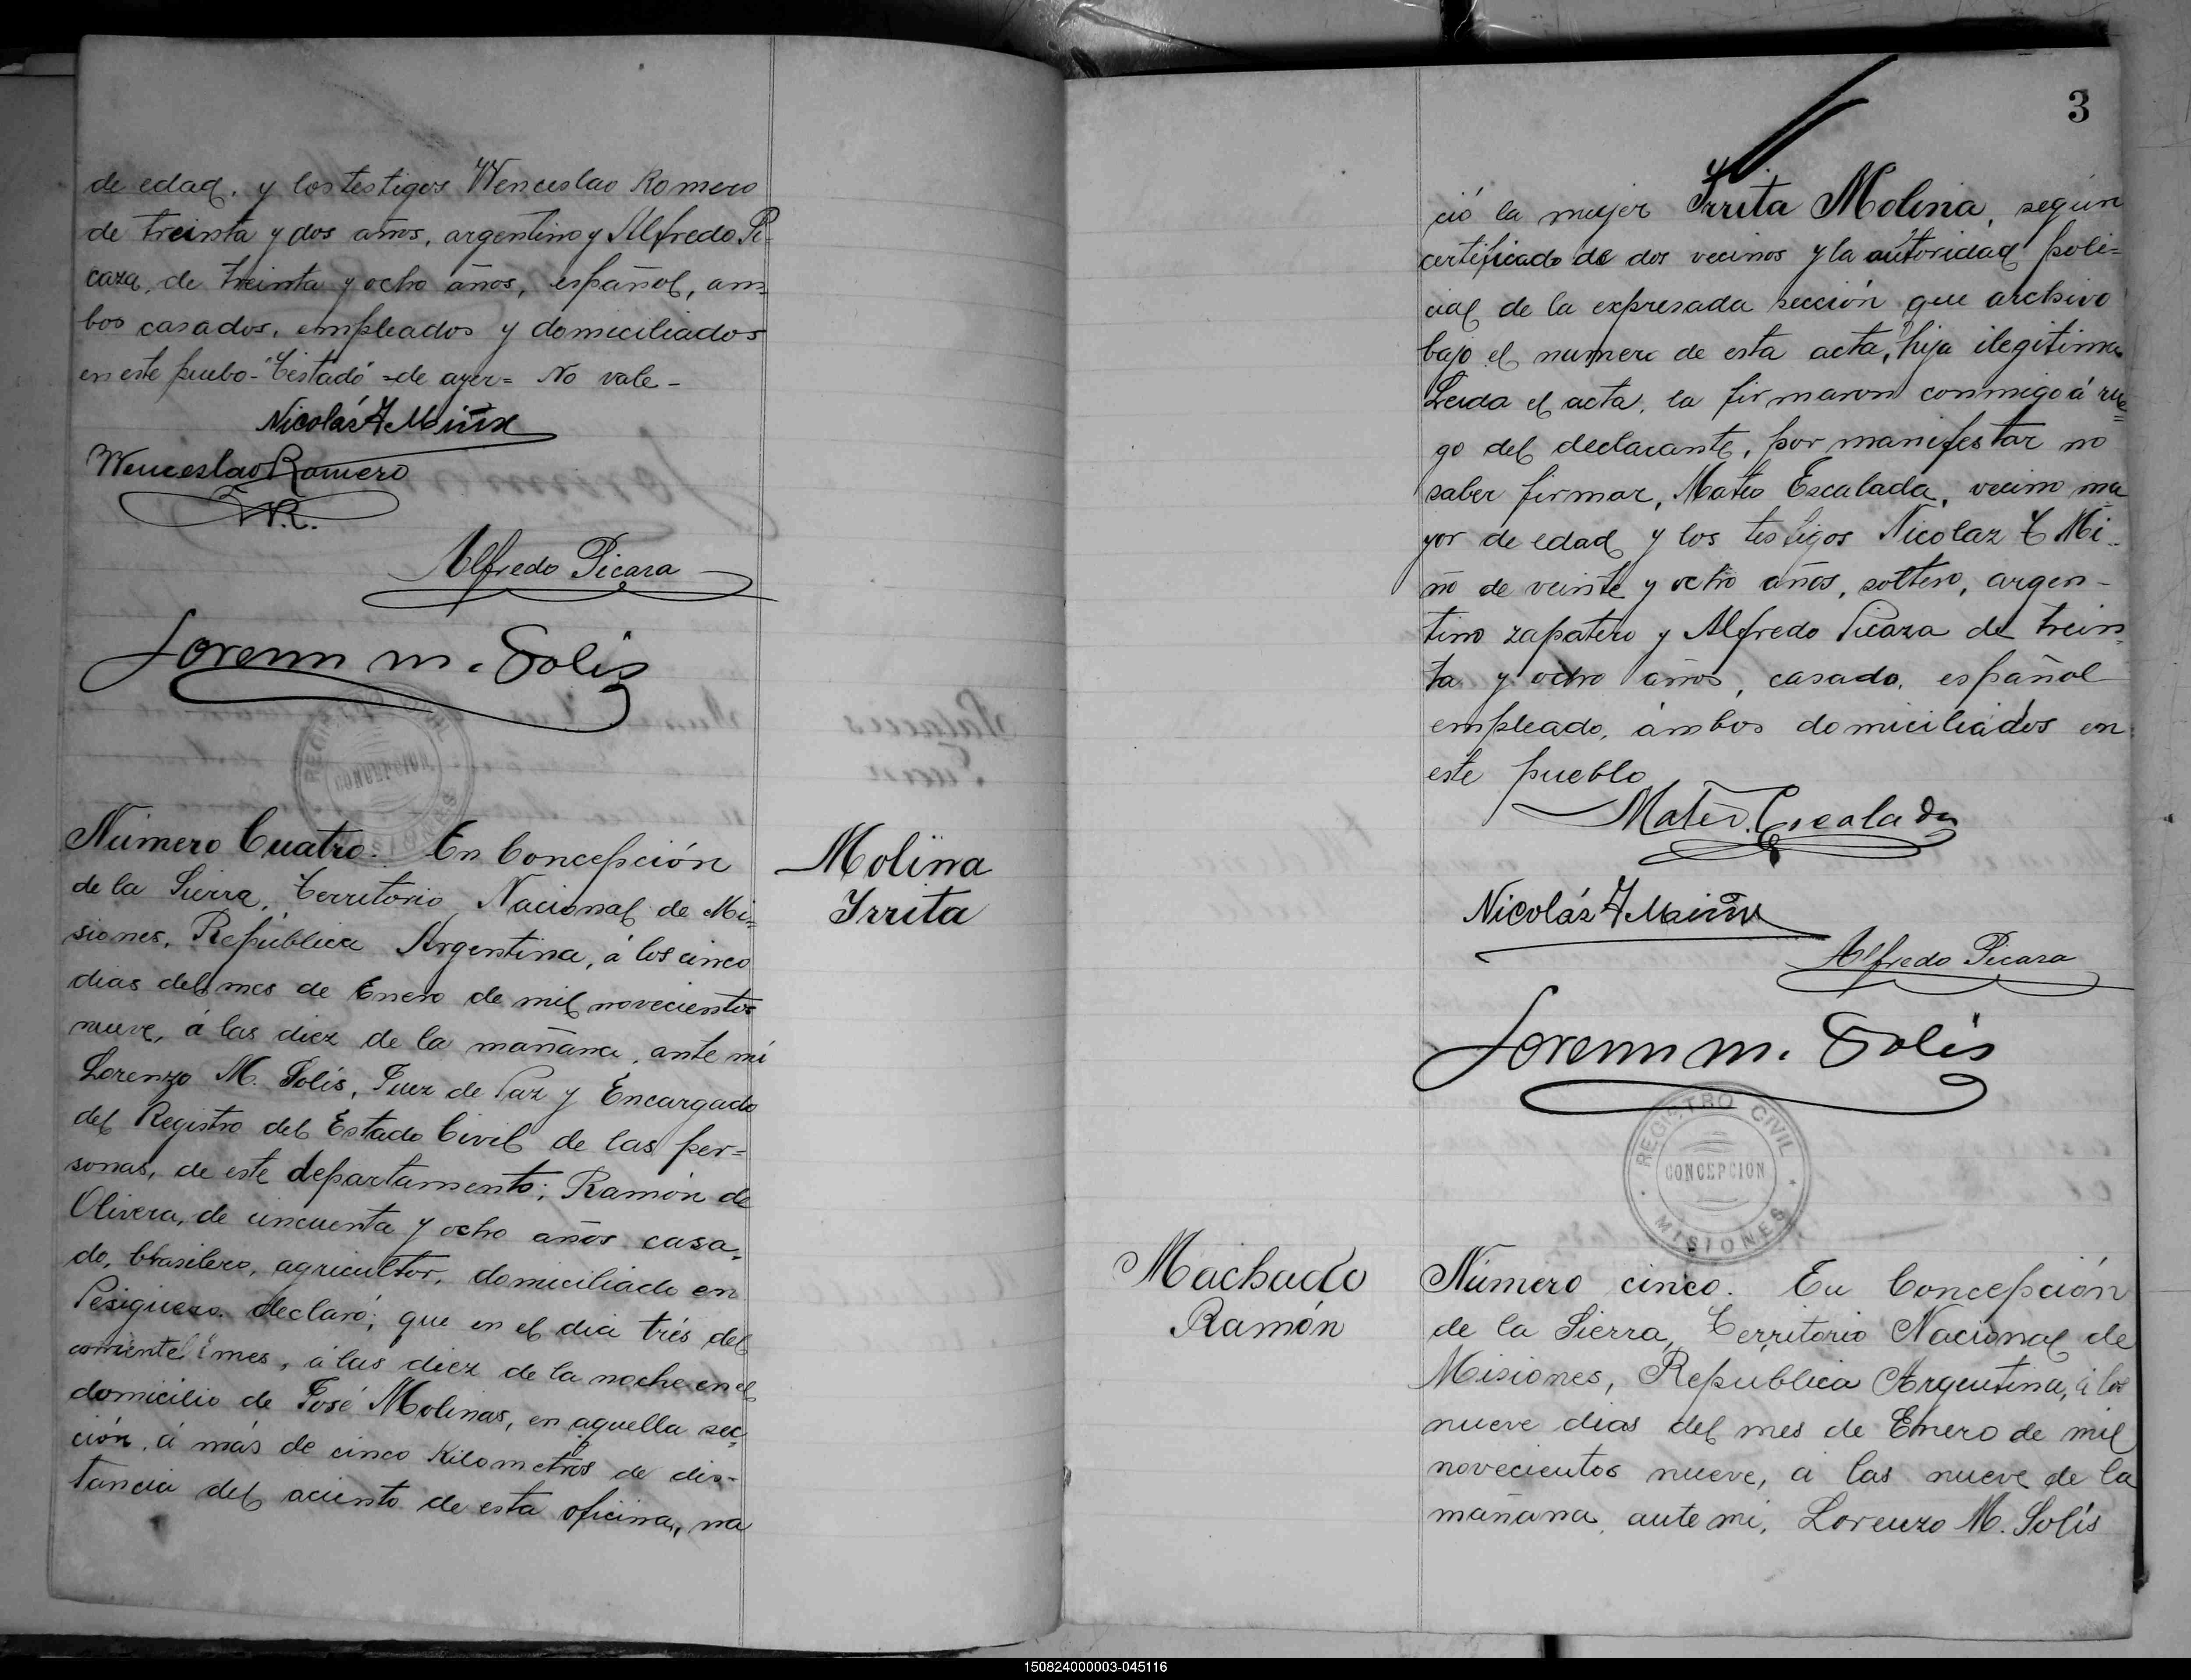 de edad, y los testigos Wenceslao Romero
de treinta y dos años, argentino y Alfredo Pi-
caza, de treinta y ocho años, español, am-
bos casados, empleados y domiciliados
en este puebo - Testado = de ayer = No vale -
Nicolás T Miño
Wenceslao Romero
W.R.
Alfredo Picaza
Lorenzo M. Solis
REGISTRO CIVIL
CONCEPCION
MISIONES
Número Cuatro. En Concepción
de la Sierra, Territorio Nacional de Mi-
siones, República Argentina, á los cinco
dias del mes de Enero de mil novecientos
nueve, á las diez de la mañana, ante mi
Lorenzo M. Solís, Juez de Paz y Encargado
del Registro del Estado Civil de las per=
sonas, de este departamento; Ramón de
Olivera, de cincuenta y ocho años casa-
do, brasilero, agricultor, domiciliado en
Persiguero declaró; que en el dia trés del
corriente mes, á las diez de la noche en el
domicilio de José Molinas, en aquella sec-
ción, á más de cinco Kilometros de dis-
tancia del aciento de esta oficina, na
Molina
Irrita
3
ció la mujer Irrita Molina, según
certificado de dos vecinos y la autoridad poli=
cial de la expresada sección que archivo
bajo el numero de esta acta, hija ilegitima
Leida el acta, la firmaron conmigo á rue=
go del declarante, por manifestar no
saber firmar, Mateo Escalada, vecino ma
yor de edad y los testigos Nicolaz T Mi-
ño de veinte y ocho años, soltero, argen-
tino zapatero y Alfredo Picaza de trein-
ta y ocho años, casado, español
empleado, ámbos domiciliados en
este pueblo
Mateo Escalada
Nicolás T Miño
Alfredo Picaza
Lorenzo M. Solis
REGISTRO CIVIL
CONCEPCION
MISIONES
Machado
Ramón
Número cinco. En Concepción
de la Sierra, Territorio Nacional de
Misiones, Republica Argentina, á los
nueve dias del mes de Enero de mil
novecientos nueve, á las nueve de la
mañana, ante mi, Lorenzo M. Solís
150824000003-045116